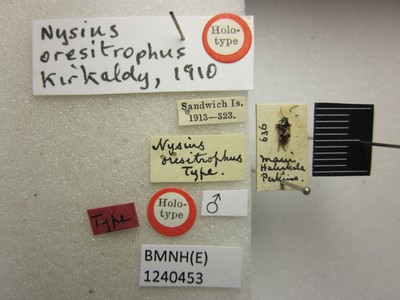 Nysius
oresitrophus
Kirkaldy, 1910
Holo-
type
Sandwich Is.
1913—323.
Nysius
oresitrophus
Type.
636
Maui
Haleakala
Perkins.
Type
Holo-
type
♂
BMNH(E)
1240453